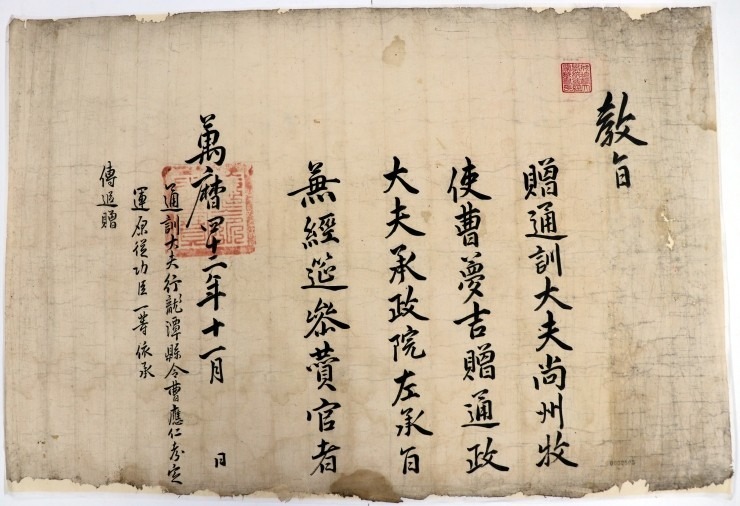 敎旨
贈通訓大夫尚州牧
使曹夢吉贈通政
大夫承政院左承旨
兼經筵叅賛官者
萬曆四十二年十一月 日
通訓大夫行龍潭縣令曹應仁考定
運原從功臣一等依承
傳追贈